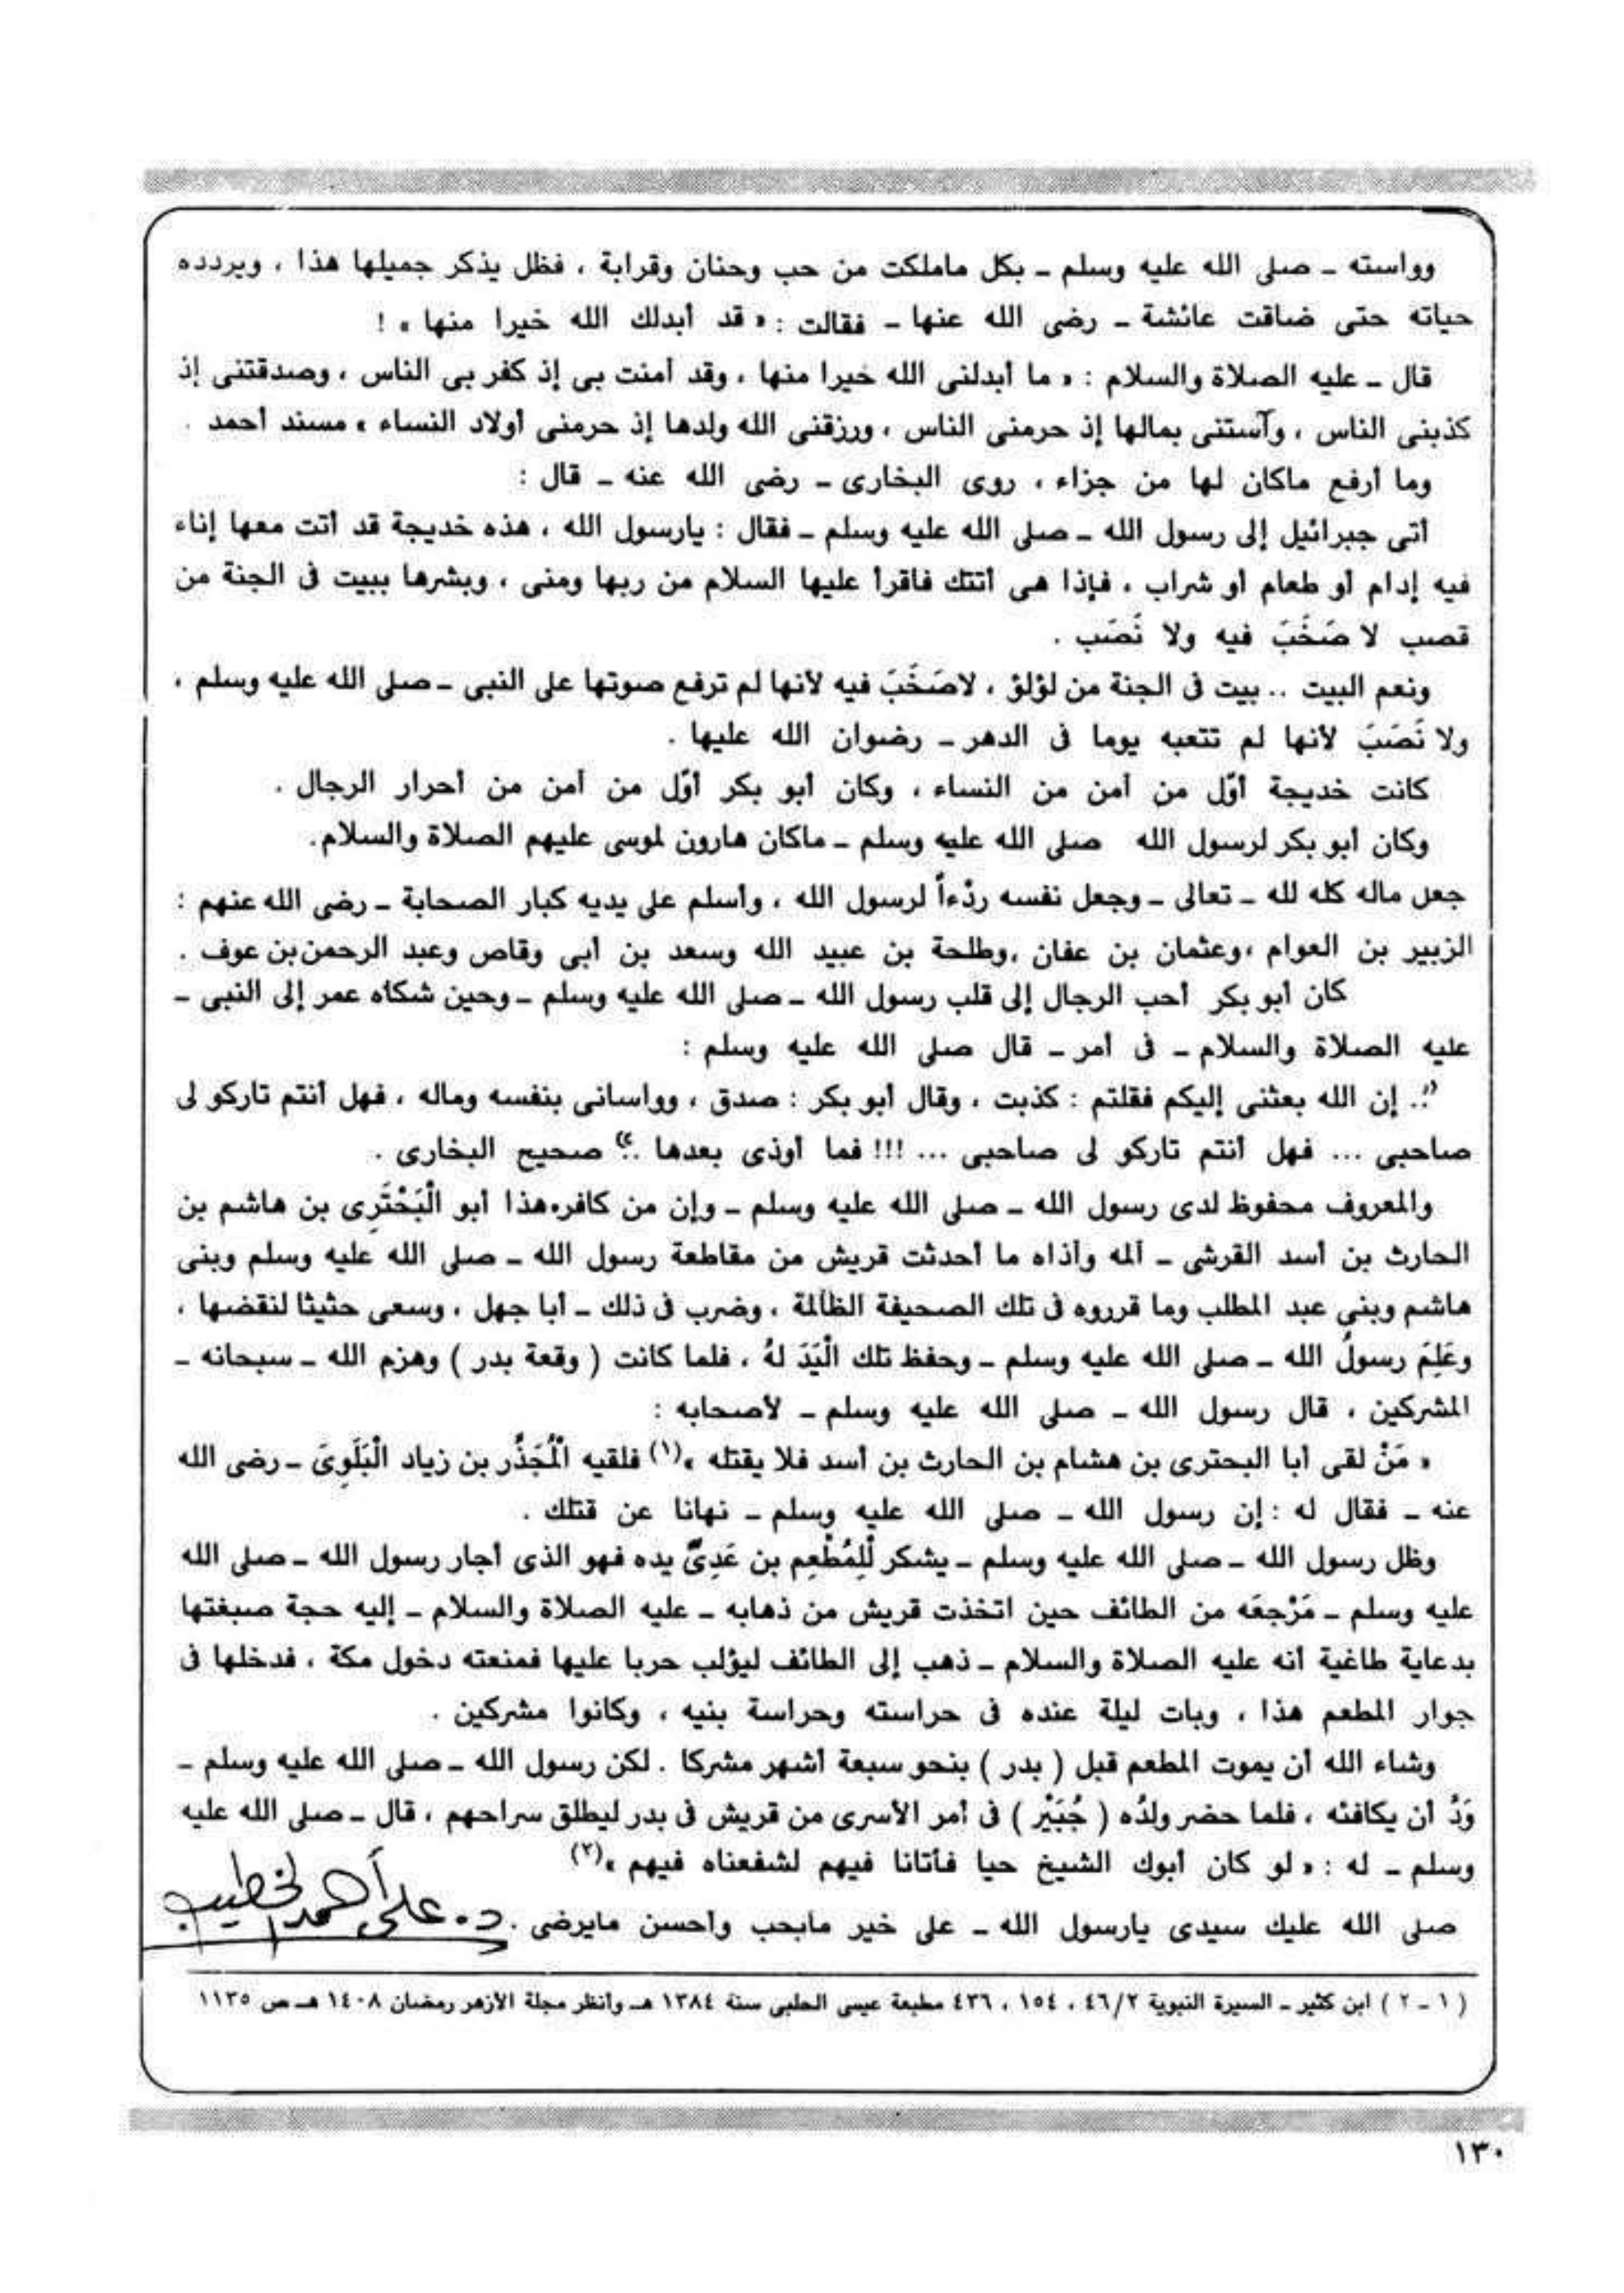 وواسته ـ صلى الله عليه وسلم ـ بكل ماملكت من حب وحنان وقرابة ، فظل يذكر جميلها هذا ، ويردده
حياته حتى ضاقت عائشة ـ رضى الله عنها ـ فقالت : « قد أبدلك الله خيرا منها » !
قال ـ عليه الصلاة والسلام : « ما أبدلنى الله خيرا منها ، وقد أمنت بى إذ كفر بى الناس ، وصدقتنى إذ
كذبنى الناس ، وآستنى بمالها إذ حرمنى الناس ، ورزقنى الله ولدها إذ حرمنى أولاد النساء » مسند أحمد .
وما أرفع ماكان لها من جزاء ، روى البخارى ـ رضى الله عنه ـ قال :
أتى جبرائيل إلى رسول الله ـ صلى الله عليه وسلم ـ فقال : يارسول الله ، هذه خديجة قد أتت معها إناء
فيه إدام أو طعام أو شراب ، فإذا هى أتتك فاقرأ عليها السلام من ربها ومنى ، وبشرها ببيت فى الجنة من
قصب لا صَخَبَ فيه ولا نَصَب .
ونعم البيت .. بيت فى الجنة من لؤلؤ ، لاصَخَبَ فيه لأنها لم ترفع صوتها على النبى ـ صلى الله عليه وسلم ،
ولا نَصَبَ لأنها لم تتعبه يوما فى الدهر ـ رضوان الله عليها .
كانت خديجة أوّل من أمن من النساء ، وكان أبو بكر أوّل من أمن من أحرار الرجال .
وكان أبو بكر لرسول الله صلى الله عليه وسلم ـ ماكان هارون لموسى عليهم الصلاة والسلام.
جعل ماله كله لله ـ تعالى ـ وجعل نفسه ردْءاً لرسول الله ، وأسلم على يديه كبار الصحابة ـ رضى الله عنهم :
الزبير بن العوام ،وعثمان بن عفان ،وطلحة بن عبيد الله وسعد بن أبى وقاص وعبد الرحمن بن عوف .
كان أبو بكر أحب الرجال إلى قلب رسول الله ـ صلى الله عليه وسلم ـ وحين شكاه عمر إلى النبى ـ
عليه الصلاة والسلام ـ فى أمر ـ قال صلى الله عليه وسلم :
“.. إن الله بعثنى إليكم فقلتم : كذبت ، وقال أبو بكر : صدق ، وواسانى بنفسه وماله ، فهل أنتم تاركو لى
صاحبى ... فهل أنتم تاركو لى صاحبى ... !!! فما أوذى بعدها ..” صحيح البخارى .
والمعروف محفوظ لدى رسول الله ـ صلى الله عليه وسلم ـ وإن من كافر،هذا أبو الْبَخْتَرِى بن هاشم بن
الحارث بن أسد القرشى ـ آلمه وآذاه ما أحدثت قريش من مقاطعة رسول الله ـ صلى الله عليه وسلم وبنى
هاشم وبنى عبد المطلب وما قرروه فى تلك الصحيفة الظالمة ، وضرب فى ذلك ـ أبا جهل ، وسعى حثيثا لنقضها ،
وعَلِمَ رسولُ الله ـ صلى الله عليه وسلم ـ وحفظ تلك الْيَدَ لهُ ، فلما كانت ( وقعة بدر ) وهزم الله ـ سبحانه ـ
المشركين ، قال رسول الله ـ صلى الله عليه وسلم ـ لأصحابه :
« مَنْ لقى أبا البحترى بن هشام بن الحارث بن أسد فلا يقتله »(١) فلقيه الْمُجَذَّر بن زياد الْبَلَوِىَ ـ رضى الله
عنه ـ فقال له : إن رسول الله ـ صلى الله عليه وسلم ـ نهانا عن قتلك .
وظل رسول الله ـ صلى الله عليه وسلم ـ يشكر لْلِمُطْعِم بن عَدِىٍّ يده فهو الذى أجار رسول الله ـ صلى الله
عليه وسلم ـ مَرْجعَه من الطائف حين اتخذت قريش من ذهابه ـ عليه الصلاة والسلام ـ إليه حجة صبغتها
بدعاية طاغية أنه عليه الصلاة والسلام ـ ذهب إلى الطائف ليؤلب حربا عليها فمنعته دخول مكة ، فدخلها فى
جوار المطعم هذا ، وبات ليلة عنده فى حراسته وحراسة بنيه ، وكانوا مشركين .
وشاء الله أن يموت المطعم قبل ( بدر ) بنحو سبعة أشهر مشركا . لكن رسول الله ـ صلى الله عليه وسلم ـ
وَدَّ أن يكافئه ، فلما حضر ولدُه ( جُبَيْر ) فى أمر الأسرى من قريش فى بدر ليطلق سراحهم ، قال ـ صلى الله عليه
وسلم ـ له : « لو كان أبوك الشيخ حيا فأتانا فيهم لشفعناه فيهم »(٢)
صلى الله عليك سيدى يارسول الله ـ على خير مايحب وأحسن مايرضى .
د. على أحمد الخطيب
( ١ ـ ٢ ) ابن كثير ـ السيرة النبوية ٤٦/٢ ، ١٥٤ ، ٤٣٦ مطبعة عيسى الحلبى سنة ١٣٨٤ هـ وانظر مجلة الأزهر رمضان ١٤٠٨ هـ ص ١١٣٥
١٣٠